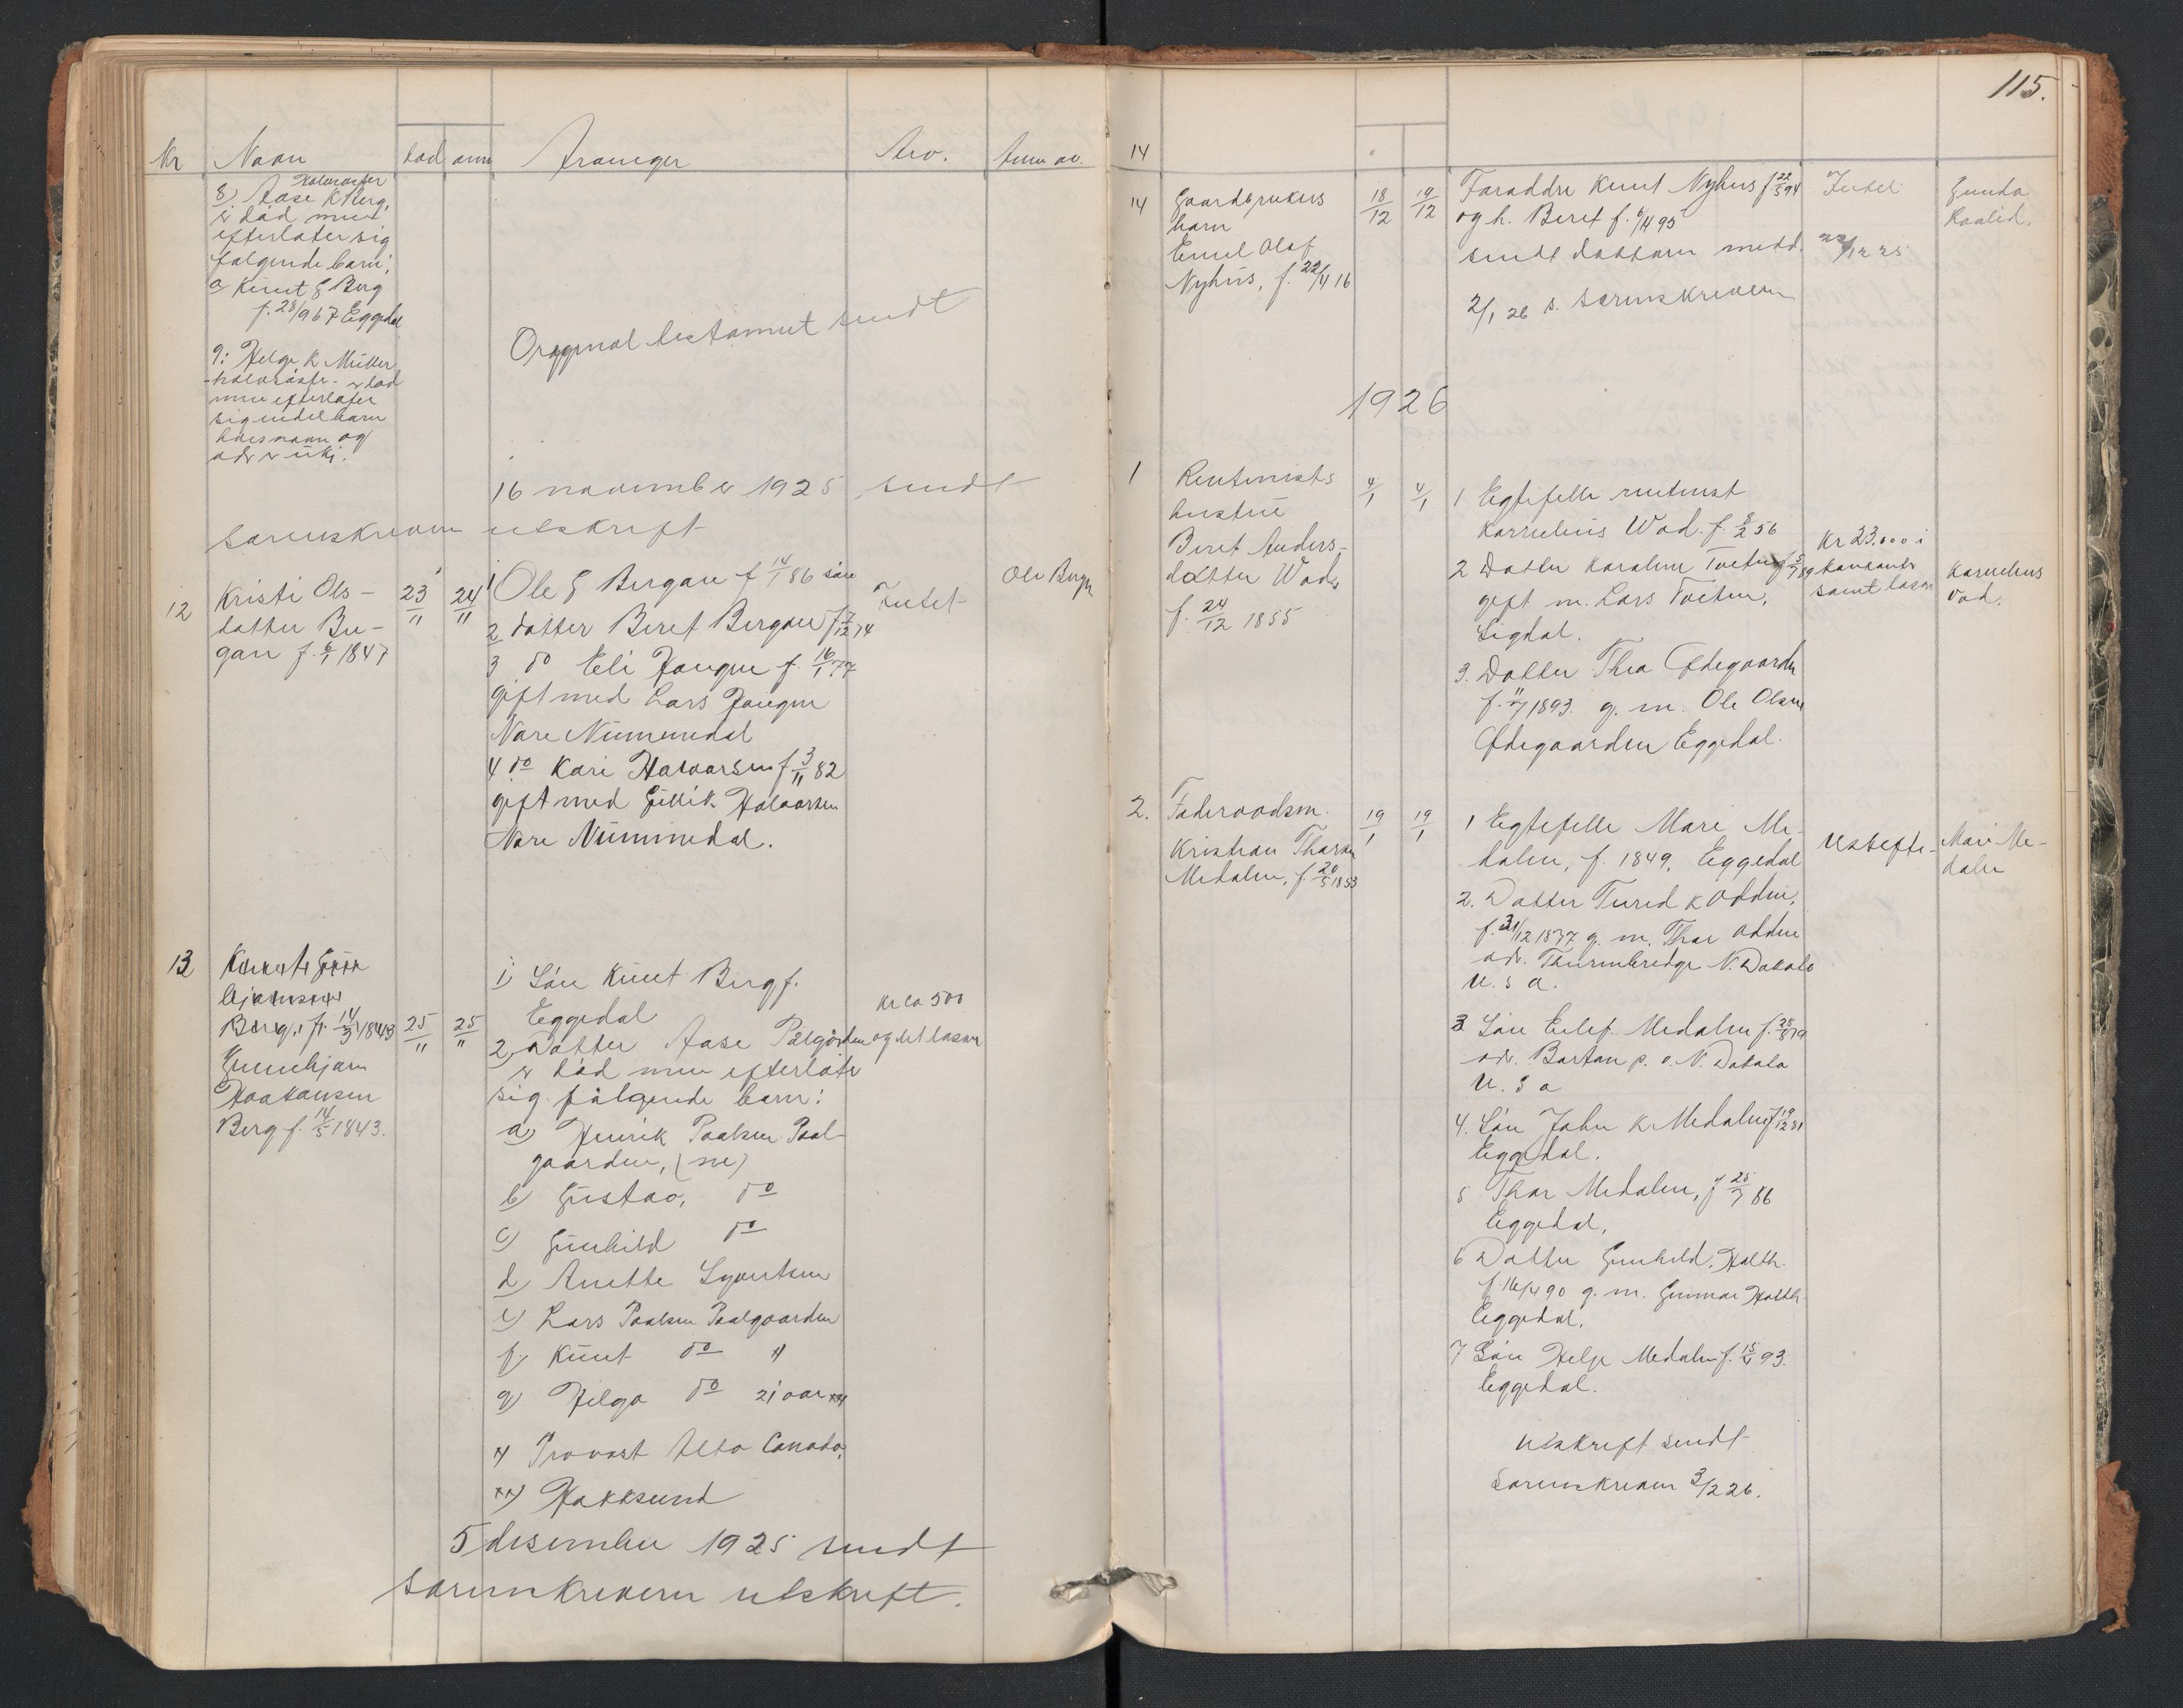 Nr Navn død anm Arvinger Arv. Anm av.
Halvsøster
8) Aase K Berg,
er død men
efterlater sig
følgende barn:
a Knut G Berg
f. 28/9 67 Eggedal
9: Helge K
- halvsøster - er død
men efterlater
sig endel barn
hvis navn og
adr er
Original testament sendt
16 november 1925 sendt
sorenskriveren utskrift
12 Kristi Ols-
datter Ber-
gan f. 6/1 1847
23/11 24/11
1 Ole G Bergan f 14/1 86 søn
2 datter Beret Bergan f 7/12 74
3 do Eli Haugen f. 16/1 77
gift med Lars Haugen
Nore Nummedal
4 do Kari Halvorsen f 3/11 82
gift med Gullik Halvorsen
Nore Nummedal.
Intet
Ole Bergan
13
Berg, f. 14/3 1843 25/11 25/11
Gunbjørn
Haakonsen
Berg f. 14/5 1843.
1) Søn Knut Berg f.
Eggedal
2) Datter Aase Pålgården
er død men efterlater
sig følgende barn:
a) Henrik Paalsen Paal-
gaarden,
b) Gustav, do
c) Gunhild do
d) Anette
e) Lars Paalsen Paalgaarden
f) Knut do x)
g) Helga do 21 aar xx)
x) Provost Alta Canada,
xx) Hokksund
kr ca 500
og det løsøre
5 desember 1925 sendt
sorenskriveren utskrift.
115.
14
14 Gaardbrukers
barn
Emil Olaf
Nyhus, f. 22/4 16
18/12 19/12
Foreldre Knut Nyhus f 22/5 94
og h. Beret f. 6/4 95
sendt dødsfaren medd.
2/1 26 s. sorenskriveren
Intet
22/12 25
Gunda
1926
1 Rentenists
hustru
Beret Anders-
datter Wad,
f. 24/12 1855
4/1 4/1
1 Egtefelle rentenist
Kornelius Wad. f. 8/2 56
2 Datter Karoline Toeten f 5/7 89
gift m. Lars Toeten,
Sigdal.
3. Datter Thea Ødegaarden
f. 11/7 1893. g. m. Ole Olsen
Ødegaarden Eggedal.
Kr 23.000 i
kontanter
samt løsøre
Kornelius
Vad.
2. Føderaadsm.
Kristian Thorsen
Medalen, f. 20/5 1853
19/1 19/1
1 Egtefelle Mari Me-
dalen, f. 1849, Eggedal
2. Datter Turid K Odden,
f. 31/12 1877 g. m. Thor Odden
adr. N. Dakota
U. S a.
3 Søn Eilef Medalen f. 25/8 79
adr. Barton p. o. N. Dakota
U. S a
4. Søn John K Medalen f 19/12 81
Eggedal.
5 Thor Medalen, f 25/7 86
Eggedal,
6 Datter Gunhild, Holth.
f. 16/4 90 g. m. Gunnar Holth.
Eggedal.
7 Søn Helge Medalen f. 15/4 93.
Eggedal.
Utskifte-
Mari Me-
dalen
utskrift sendt
Sorenskriveren 3/2 26.